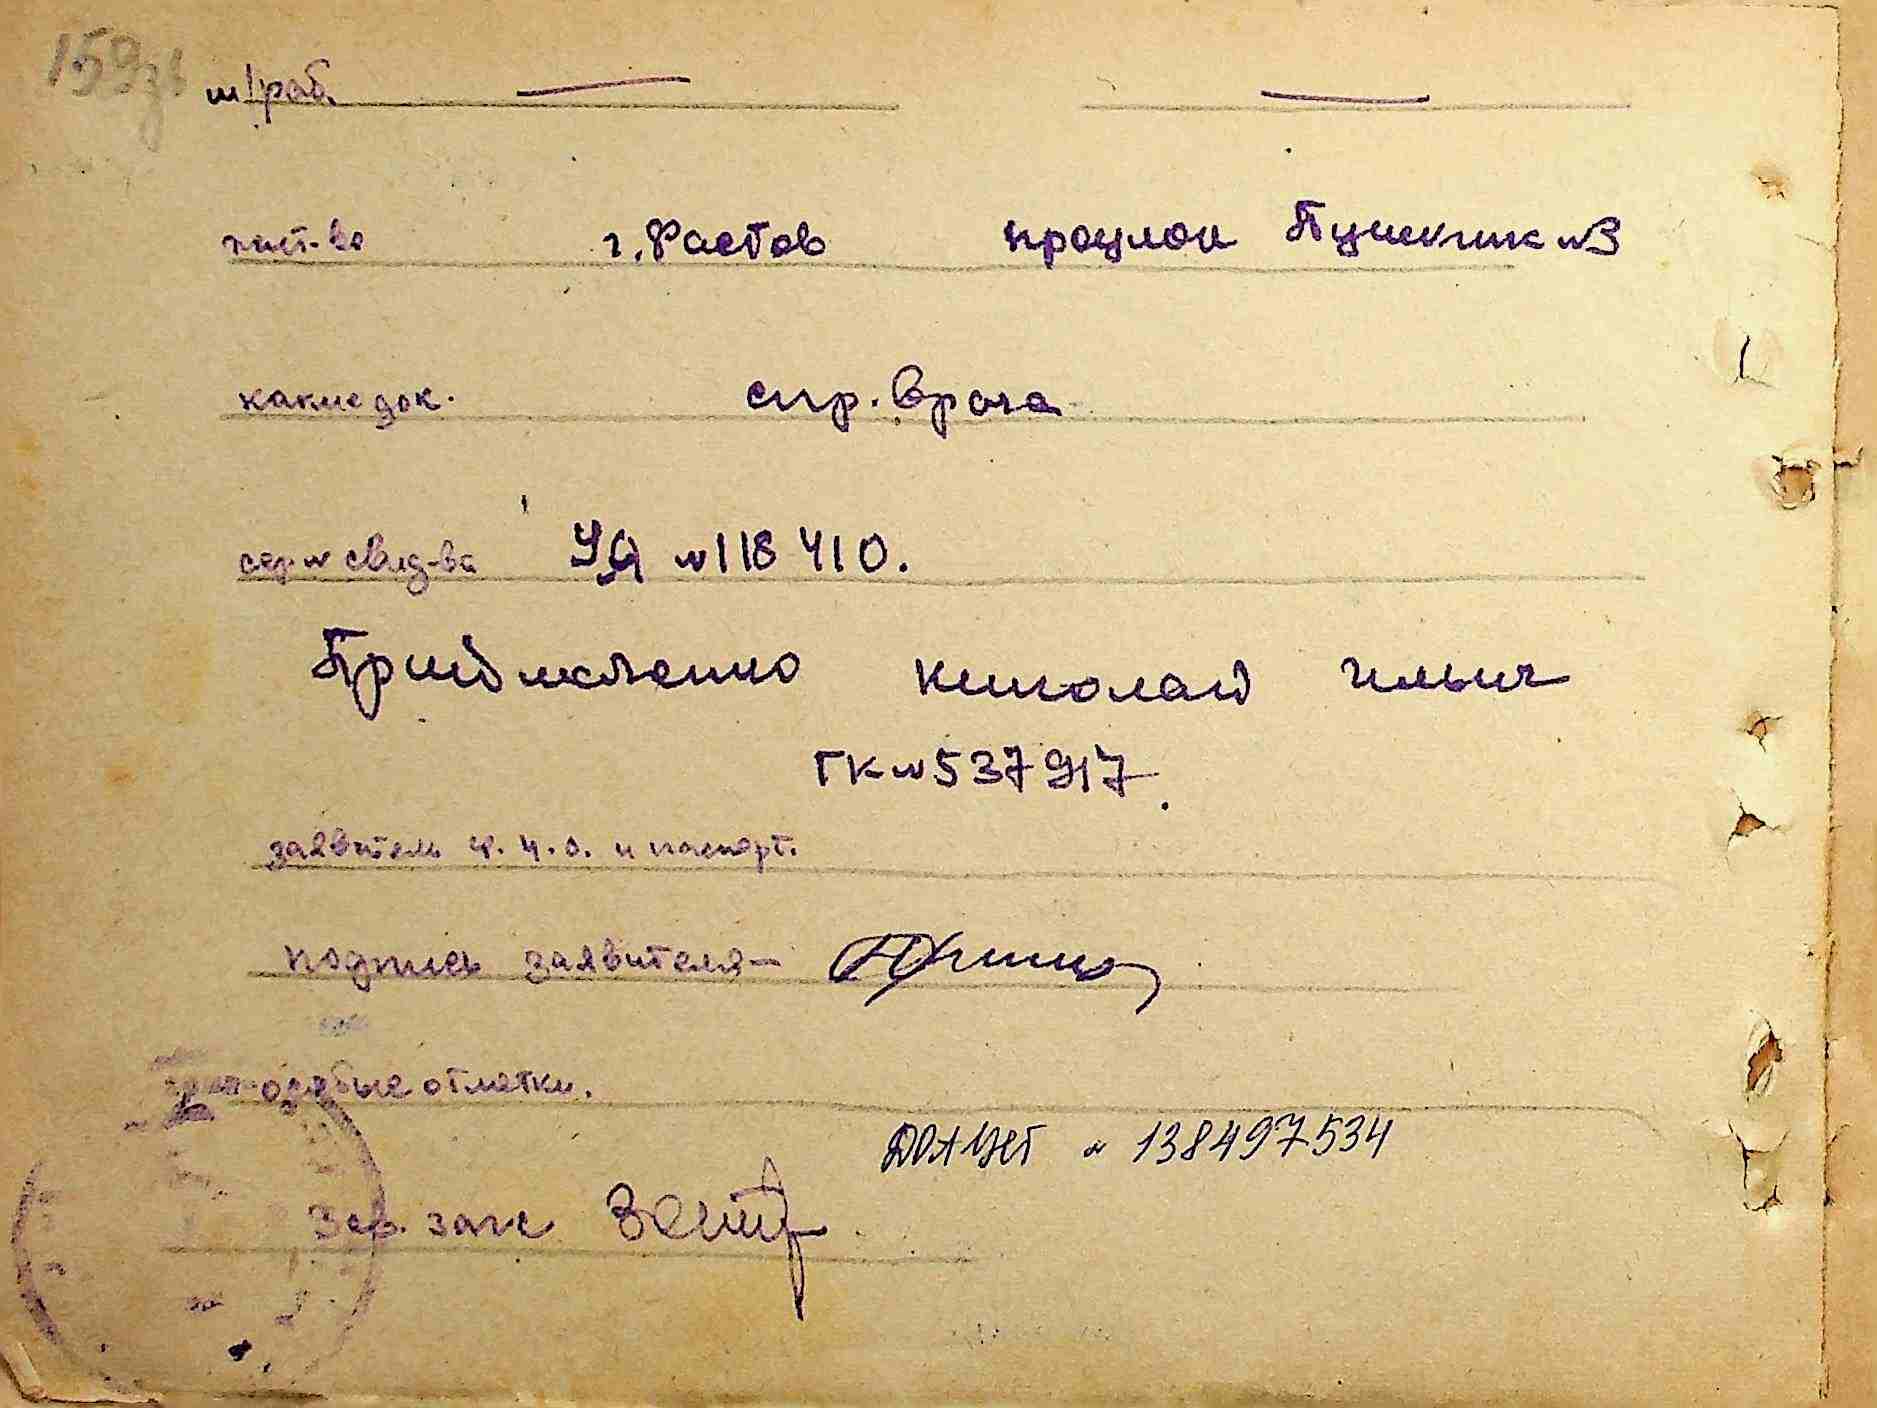 159
м/раб.
жит-во г. Фастов проулок Пушкина №3
какие док. спр. врача
сер № свид-ва УЯ №118410.
Николай Ильич
ГК №537917.
заявитель ф. и. о. и паспорт.
подпись заявителя —
особые отметки.
№ 138497534
Зав. загс